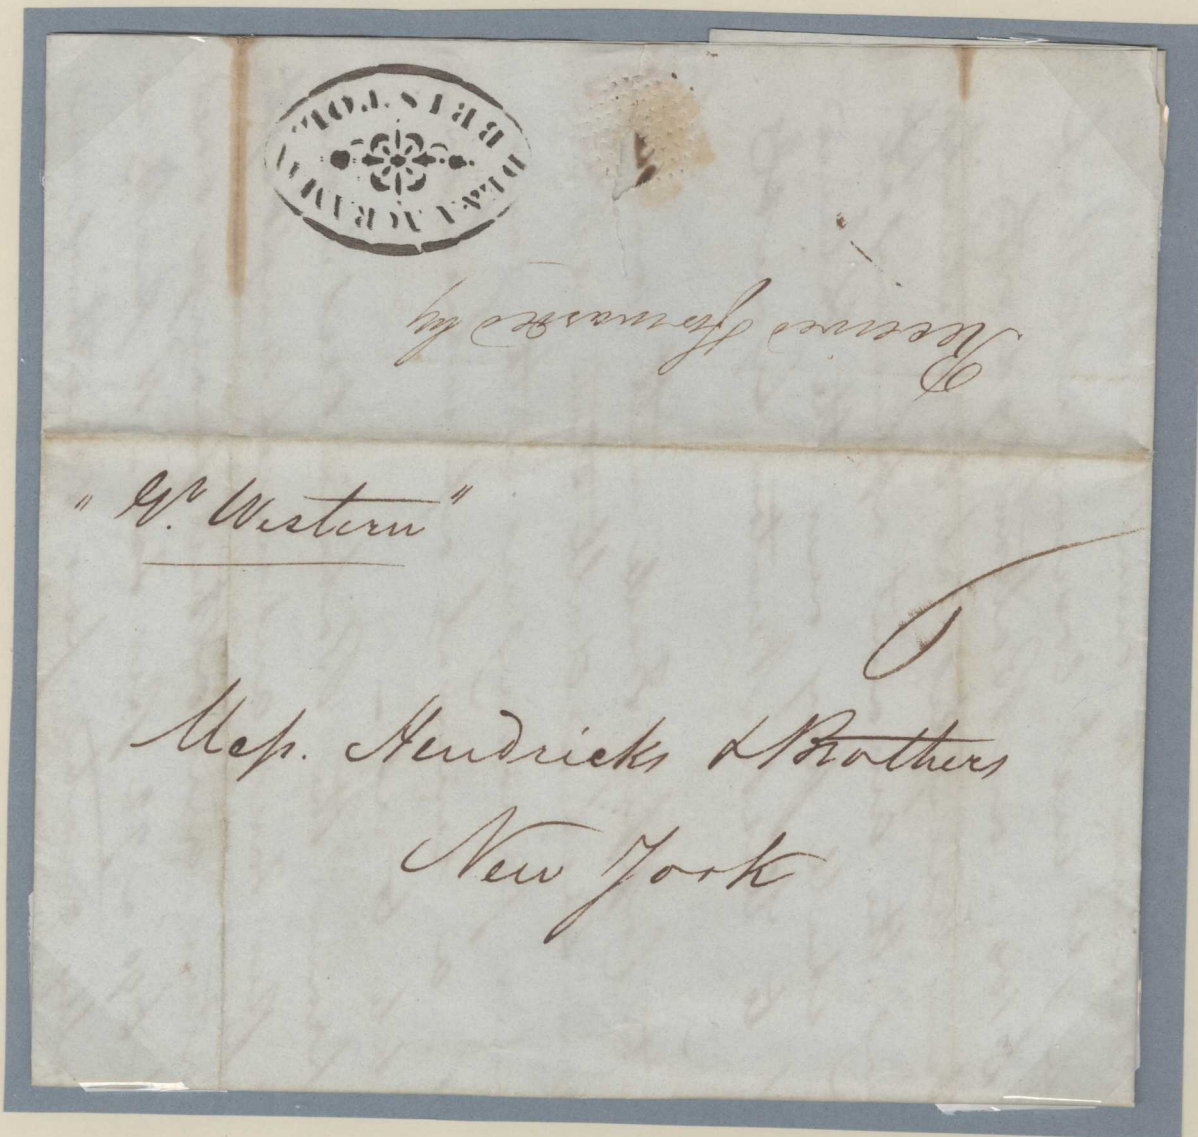 BRISTOL
Received & forwarded by
"Gt. Western"
Mess. Hendricks & Brothers
New York